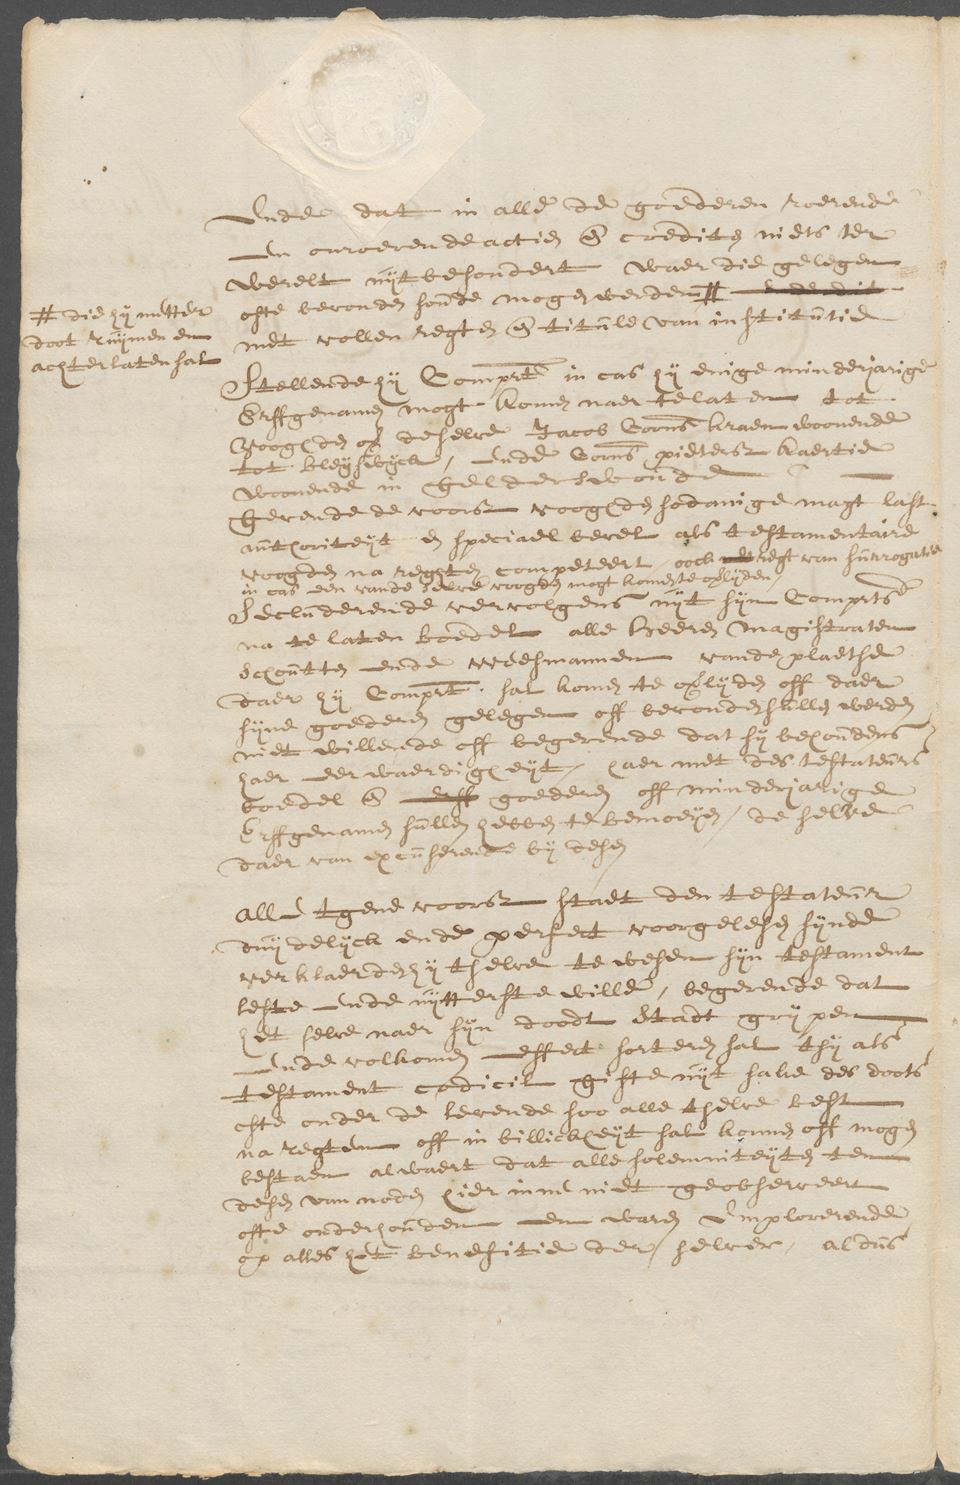 Ende dat in alle de goederen roerende
en onroerende actien & crediten niets ter
werelt uijtbesondert waer die gelegen
ofte bevonden soude mogen werden #
met vollen regten & titule van institutie
# die hij metter
doot ruijmen en
achterlaten sal
Stellende hij Comprt in cas hij enige minderjarige
Erffgenamen mogt komen naer te laten tot
Voogden over deselve Jacob Corns kraen woonende
tot bleijswijck, ende Corns pieters kaertie
woonende in gelderswoude
Gevende de voors voogden sodanige magt last
authoriteijt en speciael bevel als testamentaire
voogden na regten competeert, oock regt van surrogatie
in cas een vande selve voogden mogt komen te overlijden,
Secluderende vervolgens uijt sijn Comprts
na te laten boedel alle Heeren Magistraten
Schoutten ende Weesmannen vande plaetse
daer hij Comprt. sal komen te overlijden off daer
sijne goederen gelegen off bevonden sullen werden
niet willende off begerende dat sij behoudens
haer eerwaerdigheijt, haer met des testateurs
boedel & goederen off minderjarige
Erffgenamen sullen hebben te bemoeijen, de selve
daer van excuserende bij desen
All tgene voors staet den testateur
duijdelijck ende perfect voorgelesen sijnde
verklaerde hij tselve te wesen sijn testament
leste ende uijtterste wille, begerende dat
het selve naer sijn doodt stadt grijpen
Ende volkomen effect sorteren sal tsij als
testament codicil gifte uijt sake des doots
ofte onder de levende soo alle tselve best
na regten off in billickheijt sal konnen off mogen
bestaen alwaert dat alle solemniteijten ten
desen van noden hier inne niet geobserveert
ofte onderhouden en waren Imploreerende
op alles het benefitie der selver, aldus